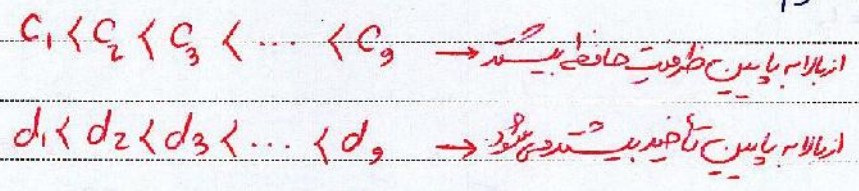 C₁ < C₂ < C₃ < ... < C₉ → از بالا به پایین ظرفیت حافظه بیشتر
d₁ < d₂ < d₃ < ... < d₉ → از بالا به پایین تأخیر بیشتر می شود